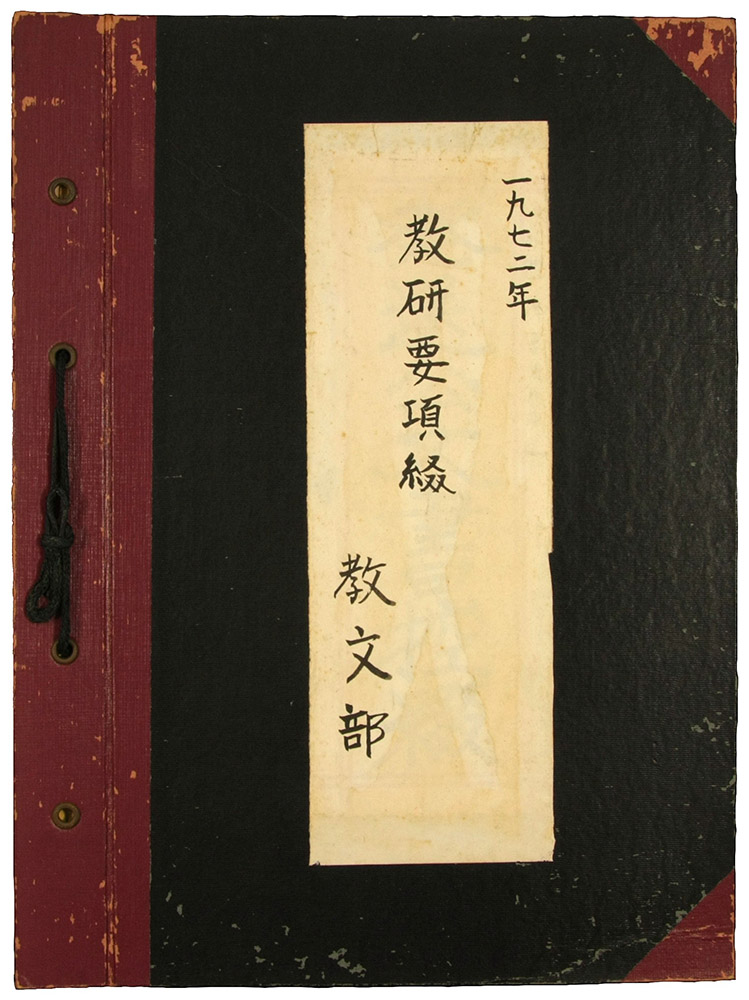 一九七二年
教研要項綴
教文部